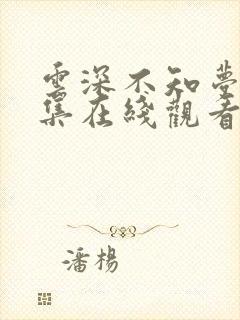 雲深不知夢
集在綫觀看
潘楊